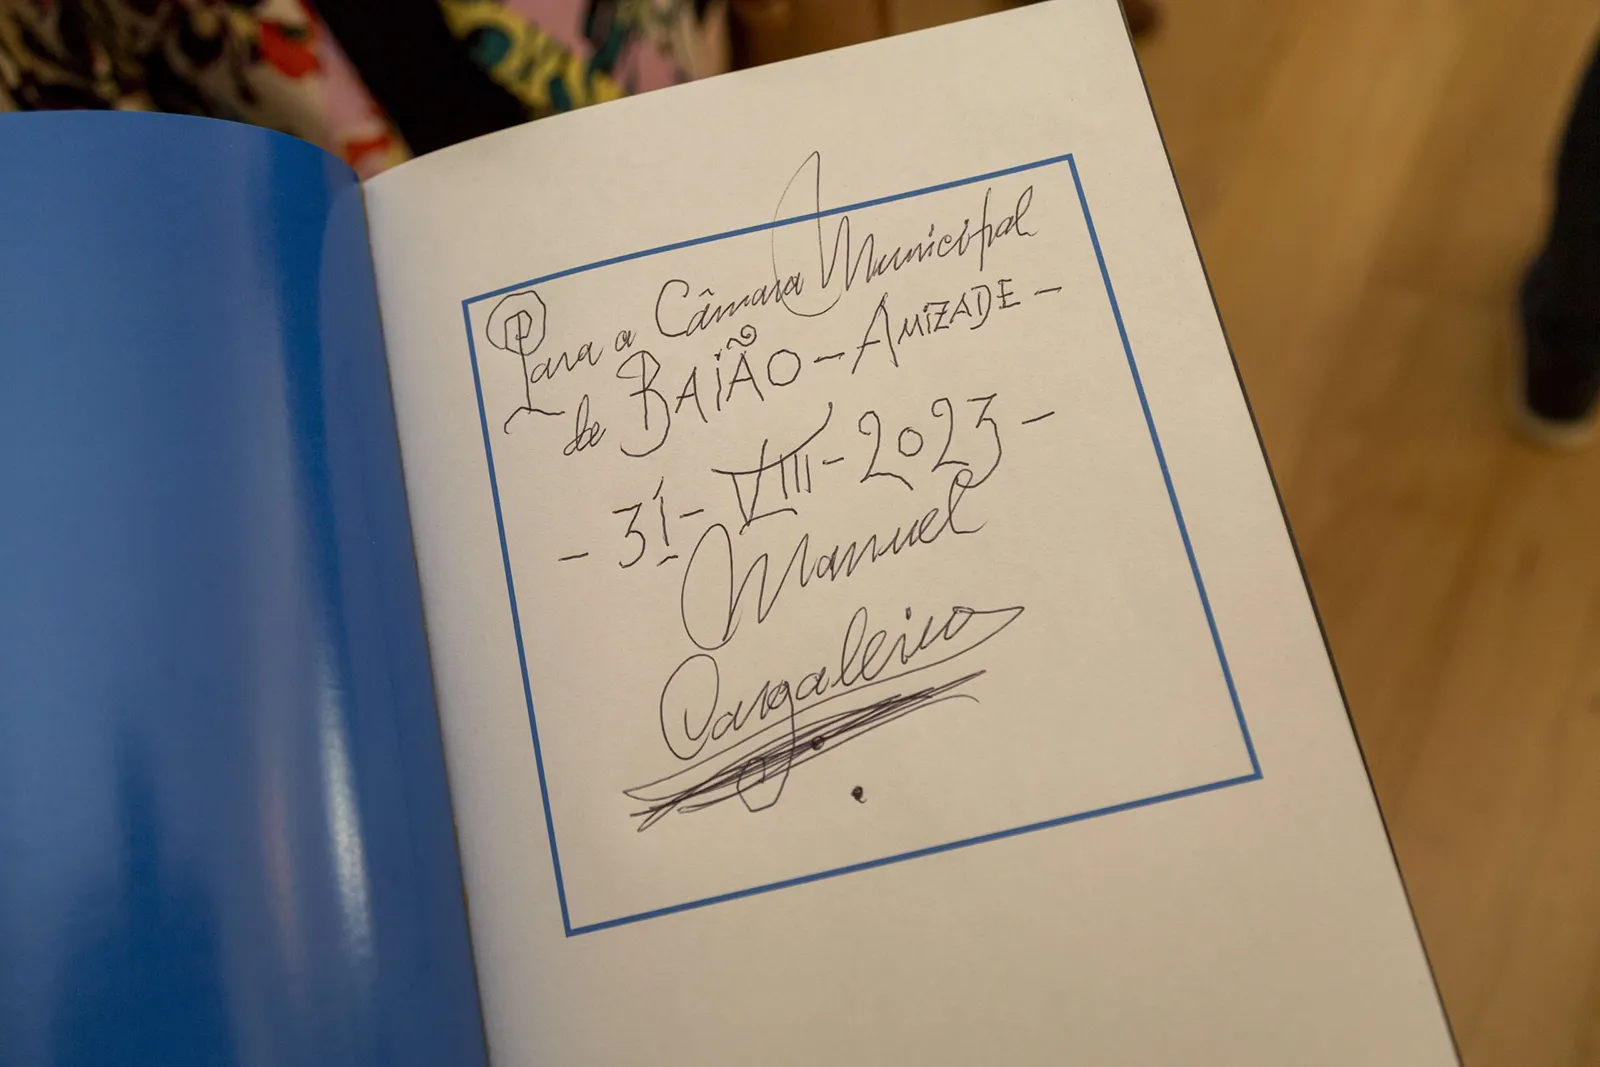 Para a Câmara Municipal
de BAIÃO - AMIZADE -
- 31 - VIII - 2023 -
Manuel
Cargaleiro